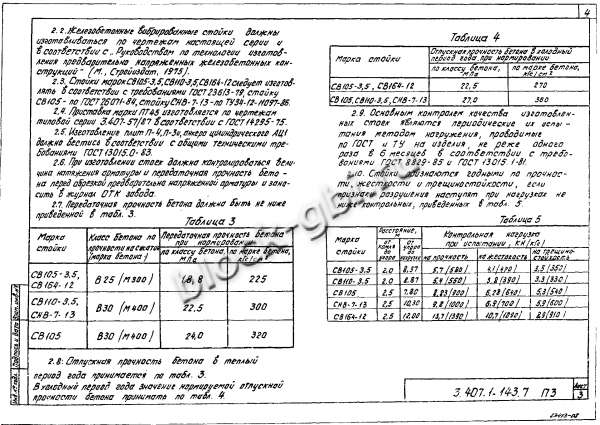 4
2.2. Железобетонные вибрированные стойки должны
изготавливаться по чертежам настоящей серии и
в соответствии с „Руководством по технологии изготов-
ления предварительно напряженных железобетонных кон-
струкций" (М., Стройиздат, 1975).
2.3. Стойки марок СВ105-3,5, СВ110-3,5, СВ164-12 следует изготов-
лять в соответствии с требованиями ГОСТ 23613-79, стойку
СВ105 - по ГОСТ 26071-84, стойку СНВ-7-13 - по ТУ34-12-11097-86.
2.4. Приставка марки ПТ45 изготовляется по чертежам
типовой серии 3.407-57/87 в соответствии с ГОСТ 14295-75.
2.5. Изготовление плит П-4, П-3и, анкера цилиндрического АЦ1
должно вестись в соответствии с общими техническими тре-
бованиями ГОСТ 13015.0-83.
2.6. При изготовлении стоек должна контролироваться вели-
чина натяжения арматуры и передаточная прочность бето-
на перед обрезкой предварительно напряженной арматуры и зано-
сить в журнал ОТК завода.
2.7. Передаточная прочность бетона должна быть не ниже
приведенной в табл. 3.
Таблица 3
Марка стойки
Класс бетона по прочности на сжатие (марка бетона)
Передаточная прочность бетона при нормировании
по классу бетона, МПа
по марке бетона, кгс/см²
СВ105-3,5, СВ164-12
В25 (М300)
18,8
225
СВ110-3,5, СНВ-7-13
В30 (М400)
22,5
300
СВ105
В30 (М400)
24,0
320
2.8. Отпускная прочность бетона в теплый
период года принимается по табл. 3.
В холодный период года значение нормируемой отпускной
прочности бетона принимать по табл. 4.
Таблица 4
Марка стойки
Отпускная прочность бетона в холодный период года, при нормировании
по классу бетона, МПа
по марке бетона, кгс/см²
СВ105-3,5, СВ164-12
22,5
270
СВ105, СВ110-3,5, СНВ-7-13
27,0
360
2.9. Основным контролем качества изготовлен-
ных стоек являются периодические их испы-
тания методом нагружения, проводимые
по ГОСТ и ТУ на изделия, не реже одного
раза в 6 месяцев в соответствии с требо-
ваниями ГОСТ 8829-85 и ГОСТ 13015.1-81.
2.10. Стойки признаются годными по прочнос-
ти, жесткости и трещиностойкости, если
признаки разрушения наступят при нагрузках не
ниже контрольных, приведенных в табл. 5.
Таблица 5
Марка стойки
Расстояние, м
от комля до упора
Контрольная нагрузка при испытании, кН (кгс)
на прочность
на жесткость
на трещиностойкость
СВ105-3,5
2,0
СВ110-3,5
2,0
СВ105
2,5
7,80
СНВ-7-13
2,5
СВ164-12
2,5
3.407.1-143.7 ПЗ
Лист
3
block-gbi.ru